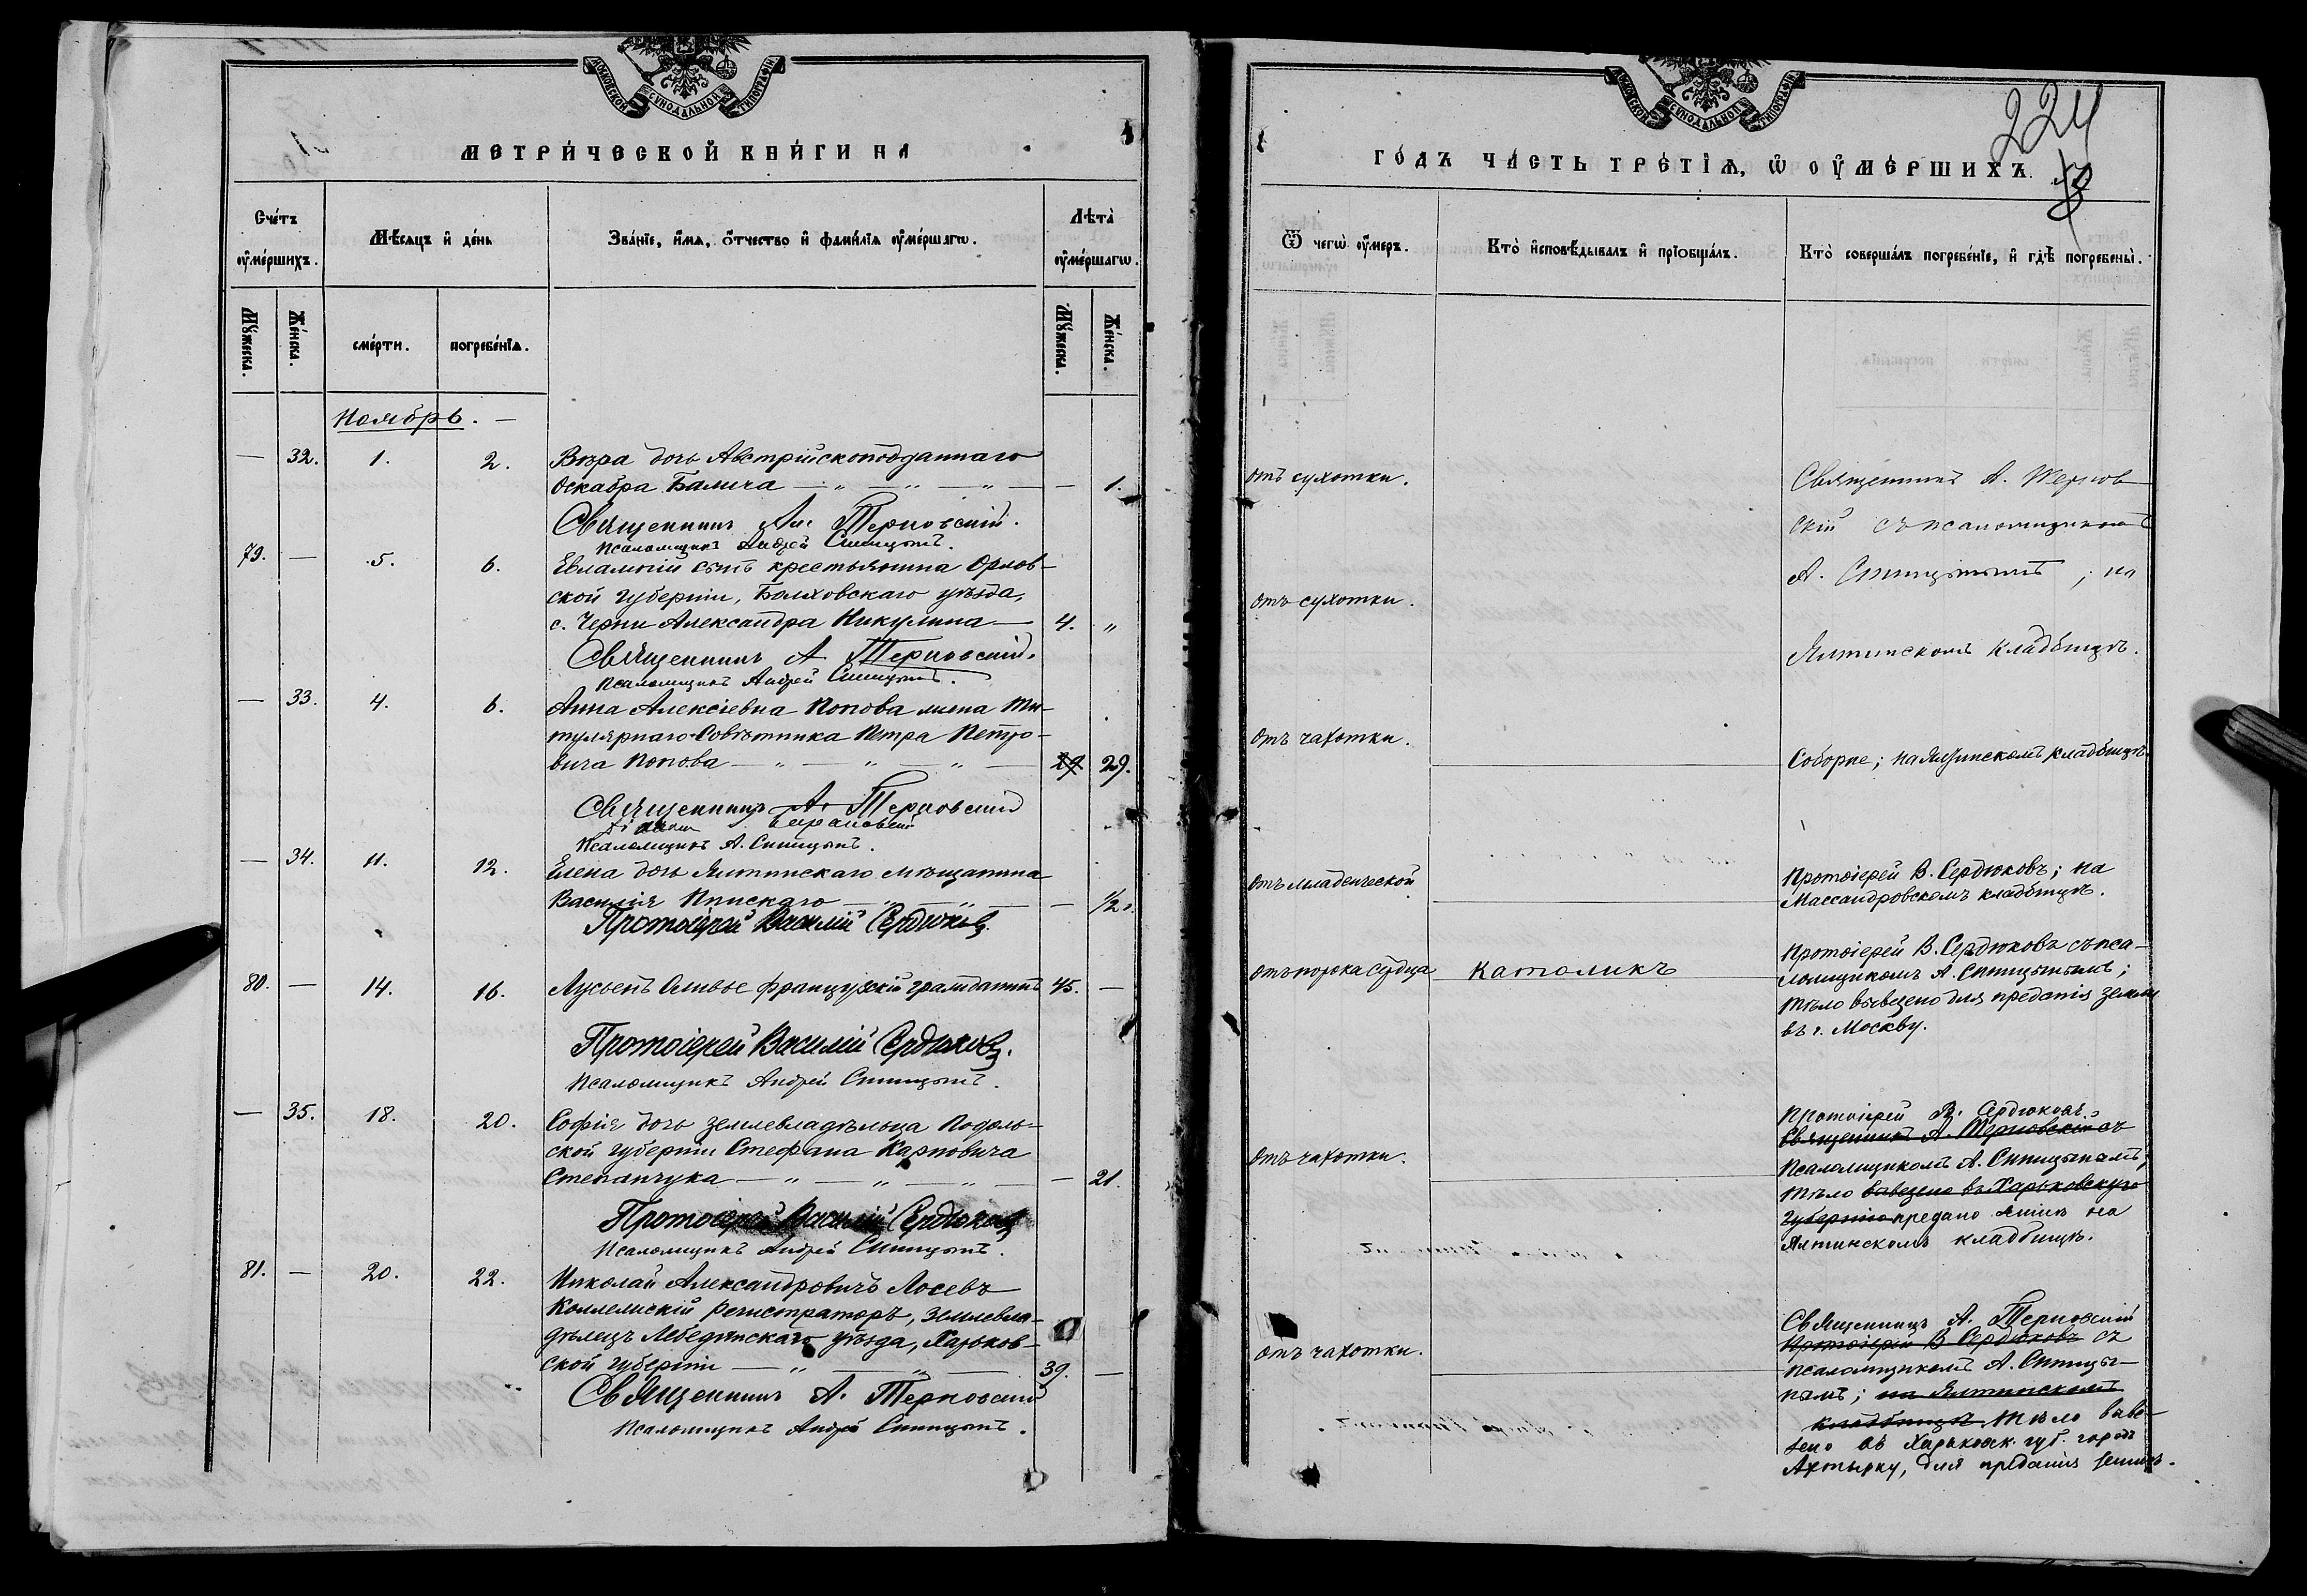 МОСКОВСКОЙ СѴНОДАЛЬНОЙ ТИПОГРАФІИ
МЕТРИ́ЧЕСКОЙ КНИ́ГИ НА
Сче́тъ ᲂу҆ме́ршихъ.
Мѣ́сяцъ и҆ де́нь
Зва́нїе, и҆́мѧ, ѻ҆́тчество и҆ фами́лїѧ ᲂу҆ме́ршагѡ.
Лѣта̀ ᲂу҆ме́ршагѡ.
Мꙋ́жеска.
Же́нска.
сме́рти.
погребе́нїѧ.
Мꙋ́жеска.
Же́нска.
Ноябрь. —
— 32. 1. 2. Вѣра дочь Австрійскоподданнаго
Оскабра Балича — „ — „ — „ — — 1.
Священникъ Ал. Терновскій.
Псаломщикъ Андрей Синицынъ.
79. — 5. 6. Евлампій сынъ крестьянина Орлов-
ской губерніи, Болховскаго уѣзда,
с. Черни Александра Никулина — 4. „
Священникъ А. Терновскій.
Псаломщикъ Андрей Синицынъ.
— 33. 4. 6. Анна Алексіевна Попова жена Ти-
тулярнаго Совѣтника Петра Петро-
вича Попова — „ — „ — „ — 29 29.
Священникъ А. Терновскій
Псаломщикъ А. Синицынъ.
— 34. 11. 12. Елена дочь Ялтинскаго мѣщанина
Василія — „ — „ — — 1/2.
Протоіерей Василій Сердюковъ.
80. — 14. 16. Лусьенъ Оливье французскій гражданинъ 45. —
Протоіерей Василій Сердюковъ.
Псаломщикъ Андрей Синицынъ.
— 35. 18. 20. Софія дочь землевладѣльца Подоль-
ской губерніи Стефана Карповича
Степанчука — „ — „ — „ — — 21.
Протоіерей Василій Сердюковъ
Псаломщикъ Андрей Синицынъ.
81. — 20. 22. Николай Александровичъ Лосевъ
Коллежскій регистраторъ, землевла-
дѣлецъ Лебединскаго уѣзда, Харьков-
ской губерніи — „ — „ — 39. —
Священникъ А. Терновскій
Псаломщикъ Андрей Синицынъ.
МОСКОВСКОЙ СѴНОДАЛЬНОЙ ТИПОГРАФІИ
224
ГО́ДЪ ЧА́СТЬ ТРЕ́ТЇѦ, Ѡ҆ ОУ҆МЕ́РШИХЪ.
Ѿ чегѡ̀ ᲂу҆́меръ.
Кто̀ и҆сповѣ́дывалъ и҆ прїобща́лъ.
Кто̀ соверша́лъ погребе́нїе, и҆ гдѣ̀ погребены̀.
отъ сухотки.
Священникъ А. Тернов-
скій съ псаломщикомъ
А. Синицынымъ; на
Ялтинскомъ кладбищѣ.
отъ сухотки.
отъ чахотки.
Соборне; на Ялтинскомъ кладбищѣ.
отъ младенческой.
Протоіерей В. Сердюковъ; на
Массандровскомъ кладбищѣ.
отъ порока сердца
Католикъ
Протоіерей В. Сердюковъ съ пса-
ломщикомъ А. Синицынымъ;
тѣло вывезено для преданія земли
въ г. Москву.
отъ чахотки.
Протоіерей В. Сердюковъ
Священникъ А. Терновскій съ
Псаломщикомъ А. Синицынымъ;
тѣло вывезено въ Харьковскую
губернію предано землѣ на
Ялтинскомъ кладбищѣ.
отъ чахотки.
Священникъ А. Терновскій
Протоіерей В. Сердюковъ съ
псаломщикомъ А. Синицы-
нымъ; на Ялтинскомъ
кладбищѣ тѣло выве-
зено въ Харьковск. губ. городъ
Ахтырку, для преданія землѣ.